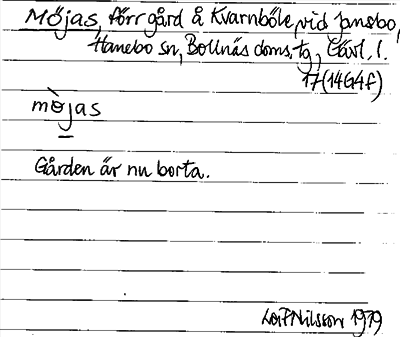 Möjas, förr gård å Kvarnböle, vid Jansbo,
Hanebo sn, Bollnäs doms. tg, Gävl. l.
17 (14G4f)
mòjas
Gården är nu borta.
Leif Nilsson 1979